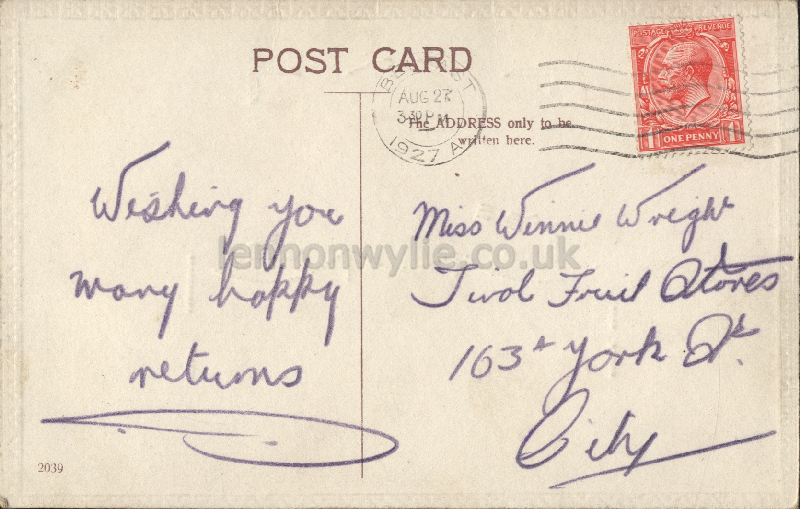 POST CARD
BELFAST
AUG 27
3 30 PM
1927 A
POSTAGE REVENUE
1 ONE PENNY 1
The ADDRESS only to be
written here.
Wishing you
many happy
returns
Miss Winnie Wright
Fruit Stores
163A York St.
City
lennonwylie.co.uk
2039